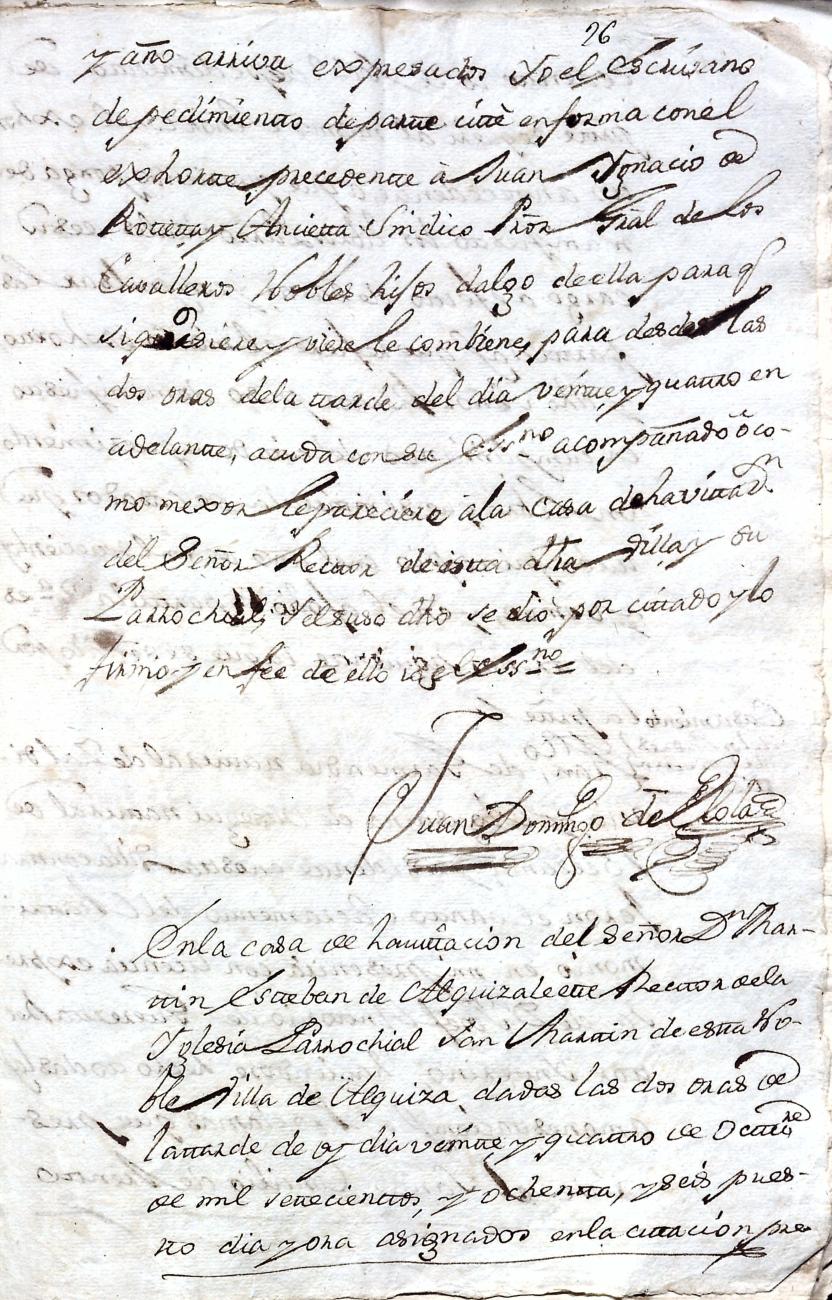 26
y año arriva expresados Yo el Escrivano
de pedimientto de partte citté en forma con el
exhortte precedentte à Juan Ygnacio de
Rotetta y Ancietta Sindico Pror Gral de los
Cavalleros Nobles hijos dalgo de ella para q
si quisiere y viere le combiene, para desde las
dos oras de la ttarde del dia veintte, y quattro en
adelantte, acuda con su Essno acompañado ô co-
mo mexor le pareciere à la casa de havittaon
del Señor Recttor de estta dha Villa, y su
Parrochial, Y el suso dho se diò por cittado y lo
firmo y en fee de ello io el Essno =
Juan Domingo de
En la casa de havittacion del Señor Dn Mar-
ttin Esteban de Alquizaleette Recttor de la
Yglesia Parrochial San Marttin de estta No-
ble Villa de Alquiza dadas las dos oras de
la ttarde de oy dia veintte, y quattro de Octtre
de mil settecienttos, y ochentta, y seis pues-
tto dia y ora asignados en la cittación pre